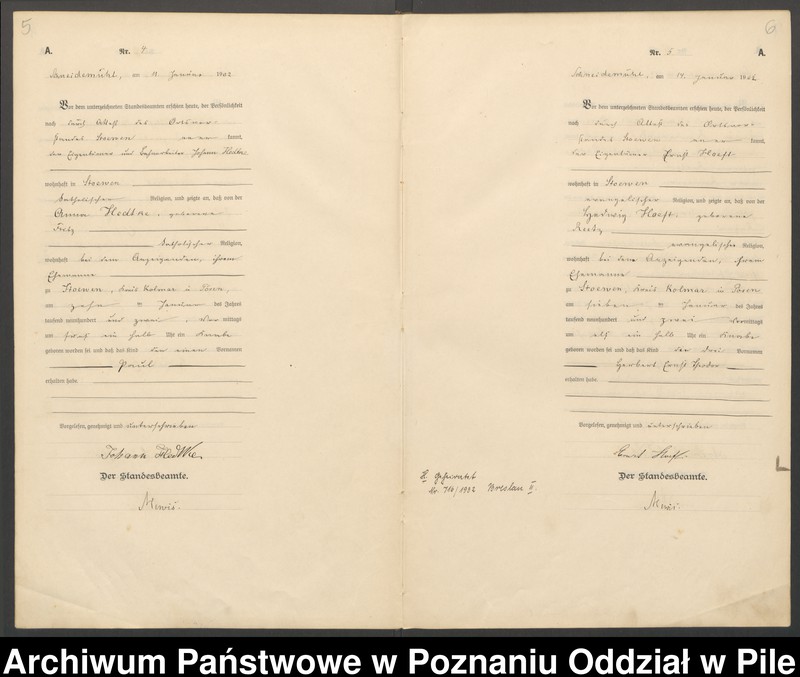 5
A. Nr. 4
Schneidemühl, am 11 Januar 1902
Vor dem unterzeichneten Standesbeamten erschien heute, der Persönlichkeit
nach durch Attest des Ortsvor-
standes Stoewen kannt,
der Eigentümer und Johann Hedtke
wohnhaft in Stoewen
katholischer Religion, und zeigte an, daß von der
Anna Hedtke, geborene
katholischer Religion,
wohnhaft bei dem Anzeigenden, ihrem
Ehemanne
zu Stoewen, Kreis Kolmar in Posen,
am zehn ten Januar des Jahres
tausend neunhundert und zwei, Vor mittags
um ein halb Uhr ein Knabe
geboren worden sei und daß das Kind den einen Vornamen
Paul
erhalten habe
Vorgelesen, genehmigt und unterschrieben
Johann Hedtke
Der Standesbeamte.
6
Nr. 5 A.
Schneidemühl, am 14 Januar 1902
Vor dem unterzeichneten Standesbeamten erschien heute, der Persönlichkeit
nach durch Attest des Ortsvor-
standes Stoewen kannt,
der Eigentümer Ernst Hoeft
wohnhaft in Stoewen
evangelischer Religion, und zeigte an, daß von der
Hedwig Hoeft, geborene
evangelischer Religion,
wohnhaft bei dem Anzeigenden, ihrem
Ehemanne
zu Stoewen, Kreis Kolmar in Posen
am sieben ten Januar des Jahres
tausend neunhundert und zwei Vormittags
um elf ein halb Uhr ein Knabe
geboren worden sei und daß das Kind die drei Vornamen
Herbert Ernst Theodor
erhalten habe
Vorgelesen, genehmigt und unterschrieben
Ernst Hoeft
Der Standesbeamte.
geheiratet
Nr. 716/1932 Breslau II.
Archiwum Państwowe w Poznaniu Oddział w Pile